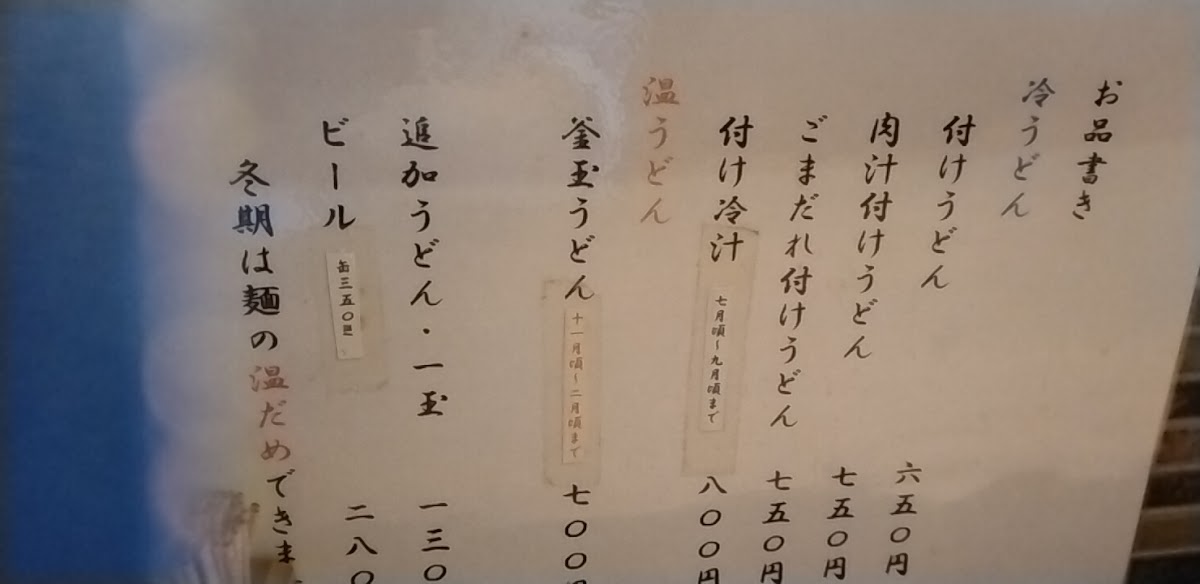 お品書き
冷うどん
付けうどん 六五〇円
肉汁付けうどん 七五〇円
ごまだれ付けうどん 七五〇円
付け冷汁 七月頃~九月頃まで 八〇〇円
温うどん
釜玉うどん 十一月頃~二月頃まで 七〇〇円
追加うどん・一玉 一三〇
ビール 缶三五〇㍉ 二八〇
冬期は麺の温だめできま